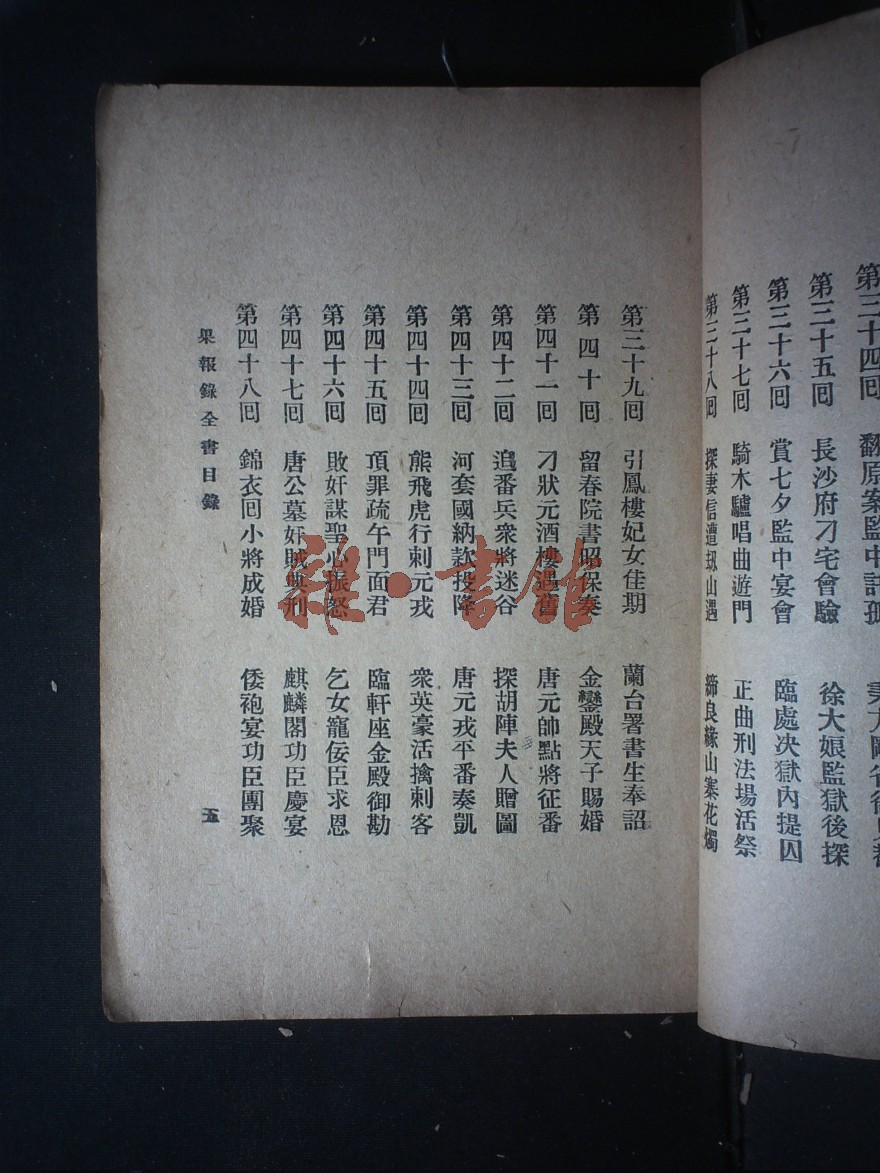 第三十四囘 翻原案監中託孤
第三十五囘 長沙府刁宅會驗 徐大娘監獄後探
第三十六囘 賞七夕監中宴會 臨處决獄內提囚
第三十七囘 騎木驢唱曲遊門 正曲刑法場活祭
第三十八囘 探妻信遭刼山遇 締良緣山寨花燭
第三十九囘 引鳳樓妃女佳期 蘭台署書生奉詔
第四十囘 留春院書昭保奏 金鑾殿天子賜婚
第四十一囘 刁狀元酒樓遇舊 唐元帥點將征番
第四十二囘 追番兵衆將迷谷 探胡陣夫人贈圖
第四十三囘 河套國納款投降 唐元戎平番奏凱
第四十四囘 熊飛虎行刺元戎 衆英豪活擒刺客
第四十五囘 頂罪疏午門面君 臨軒座金殿御勘
第四十六囘 敗奸謀聖心振怒 乞女寵佞臣求恩
第四十七囘 唐公墓奸賊典刑 麒麟閣功臣慶宴
第四十八囘 錦衣囘小將成婚 倭袍宴功臣團聚
果報錄全書目錄 五
雜·書館